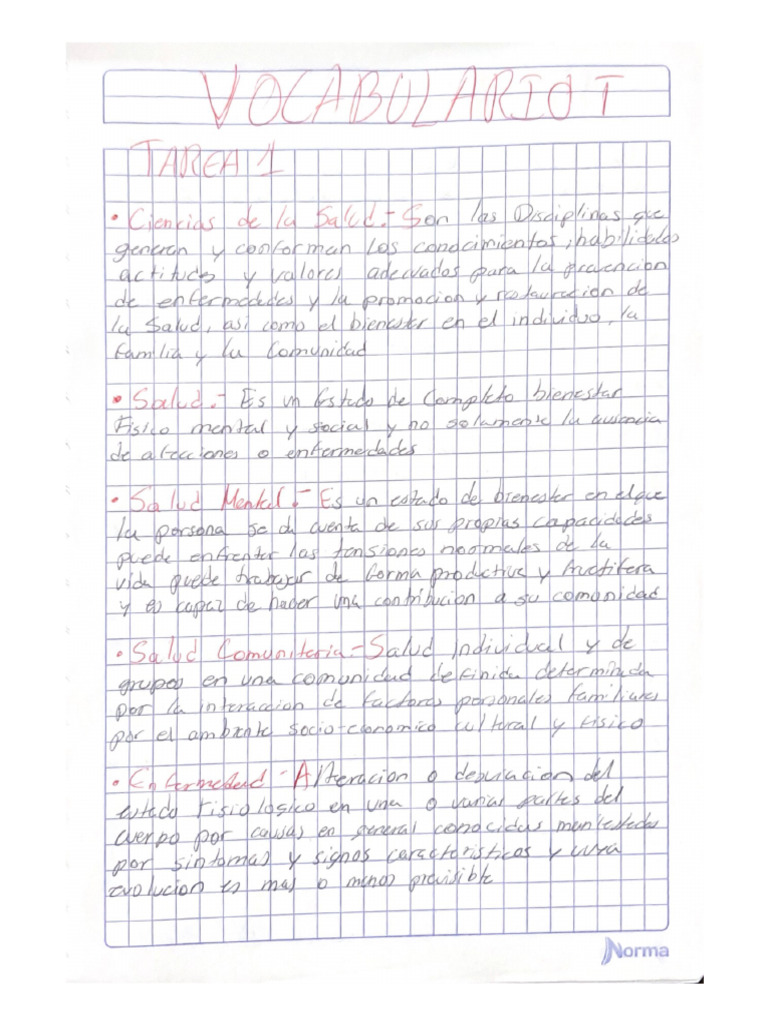 VOCABULARIO I
TAREA 1
• Ciencias de la Salud.- Son las Disciplinas que
generan y conforman los conocimientos, habilidades
actitudes y valores adecuados para la prevencion
de enfermedades y la promocion y restauracion de
la Salud, asi como el bienestar en el individuo, la
familia y la Comunidad
• Salud.- Es un Estado de Completo bienestar
Fisico mental y social y no solamente la ausencia
de afecciones o enfermedades
• Salud Mental.- Es un estado de bienester en el que
la persona se da cuenta de sus propias capacidades
puede enfrentar las tensiones normales de la
vida puede trabajar de forma productiva y fructifera
y es capaz de hacer una contribucion a su comunidad
• Salud Comunitaria - Salud individual y de
grupos en una comunidad definida determinada
por la interaccion de factores personales familiares
por el ambiente socio-economico cultural y fisico
• Enfermedad - Alteracion o desviacion del
estado fisiologico en una o varias partes del
cuerpo por causas en general conocidas manifestadas
por sintomas y signos caracteristicos y cuya
evolucion es mas o menos previsible
Norma